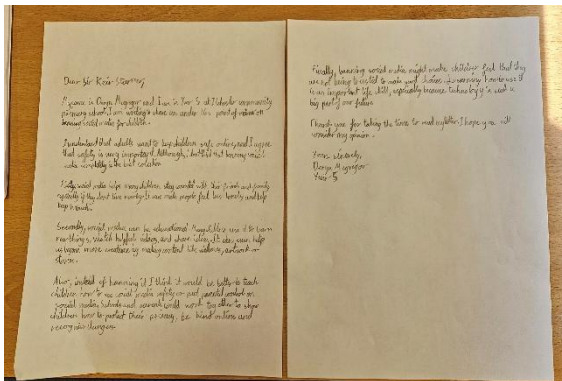 Dear Sir Keir Starmer,
My name is and I am in Year 5 at community
primary school. I am writing to share an under 16s point of view on
banning social media for children.
I understand that adults want to keep children safe online, and I agree
that safety is very important. Although, I feel that banning social
media completely is the best solution.
Firstly, social media helps many children stay connected with their friends and family
especially if they don't live nearby. It can make people feel less lonely and help
keep in touch.
Secondly, social media can be educational. Many children use it to learn
new things, watch helpful videos, and share ideas. It also can help
us become more creative by making content like videos, artwork or
stories.
Also, instead of banning it I think it would be better to teach
children how to use social media safely or put parental controls on
social media. Schools and parents could work together to show
children how to protect their privacy, be kind online and
recognise dangers.
Finally, banning social media might make children feel that they
are not being trusted to make good choices. Learning how to use it
is an important life skill, especially because technology is such a
big part of our future.
Thank you for taking the time to read my letter. I hope you will
consider my opinion.
Yours sincerely,
Year 5